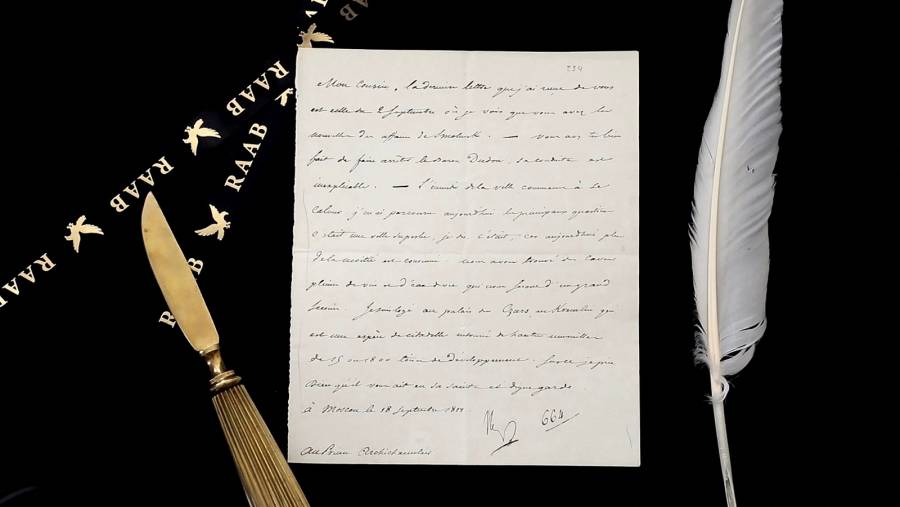 234
Mon Cousin, la dernière lettre que j'ai reçue de vous
est celle du 2 Septembre où je vois que vous avez les
nouvelles des affaires de Smolensk. — Vous avez très bien
fait de faire arrêter le Baron Dudon, sa conduite est
inexplicable. — L'incendie de la ville commence à se
calmer, j'en ai parcouru aujourd'hui les principaux quartiers
C'était une ville superbe, je dis c'était, car aujourd'hui plus
de la moitié est consumée. nous avons trouvé des caves
pleines de vin et d'eau de vie qui nous seront d'un grand
secours. Je suis logé au palais des Czars au Kremlin qui
est une espèce de citadelle entourée de hautes murailles
de 15 ou 1800 toises de développement. Sur ce je prie
Dieu qu'il vous ait en sa sainte et digne garde
à Moscou le 18 septembre 1812
Np
664
Au Prince Archichancelier
RAAB
RAAB
RAAB
RAAB
RAAB
RAAB
RAAB